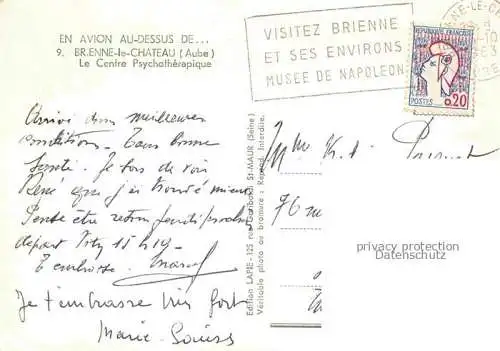 EN AVION AU-DESSUS DE...
9. BRIENNE-le-CHATEAU (Aube)
Le Centre Psychothérapique
VISITEZ BRIENNE
ET SES ENVIRONS
MUSEE DE NAPOLEON
REPUBLIQUE FRANCAISE
POSTES 0,20
Arrivé dans meilleures
conditions. Tous bonne
santé. Je sors de voir
René que j'ai trouvé mieux
Peut être retour jeudi
départ 15 h 19.
T'embrasse. Marcel
Je t'embrasse très fort
Marie-Louise
Edition LAPIE - 125 rue Garibaldi, St-MAUR (Seine)
Véritable photo au bromure : Reprod. Interdite.
76
privacy protection
Datenschutz